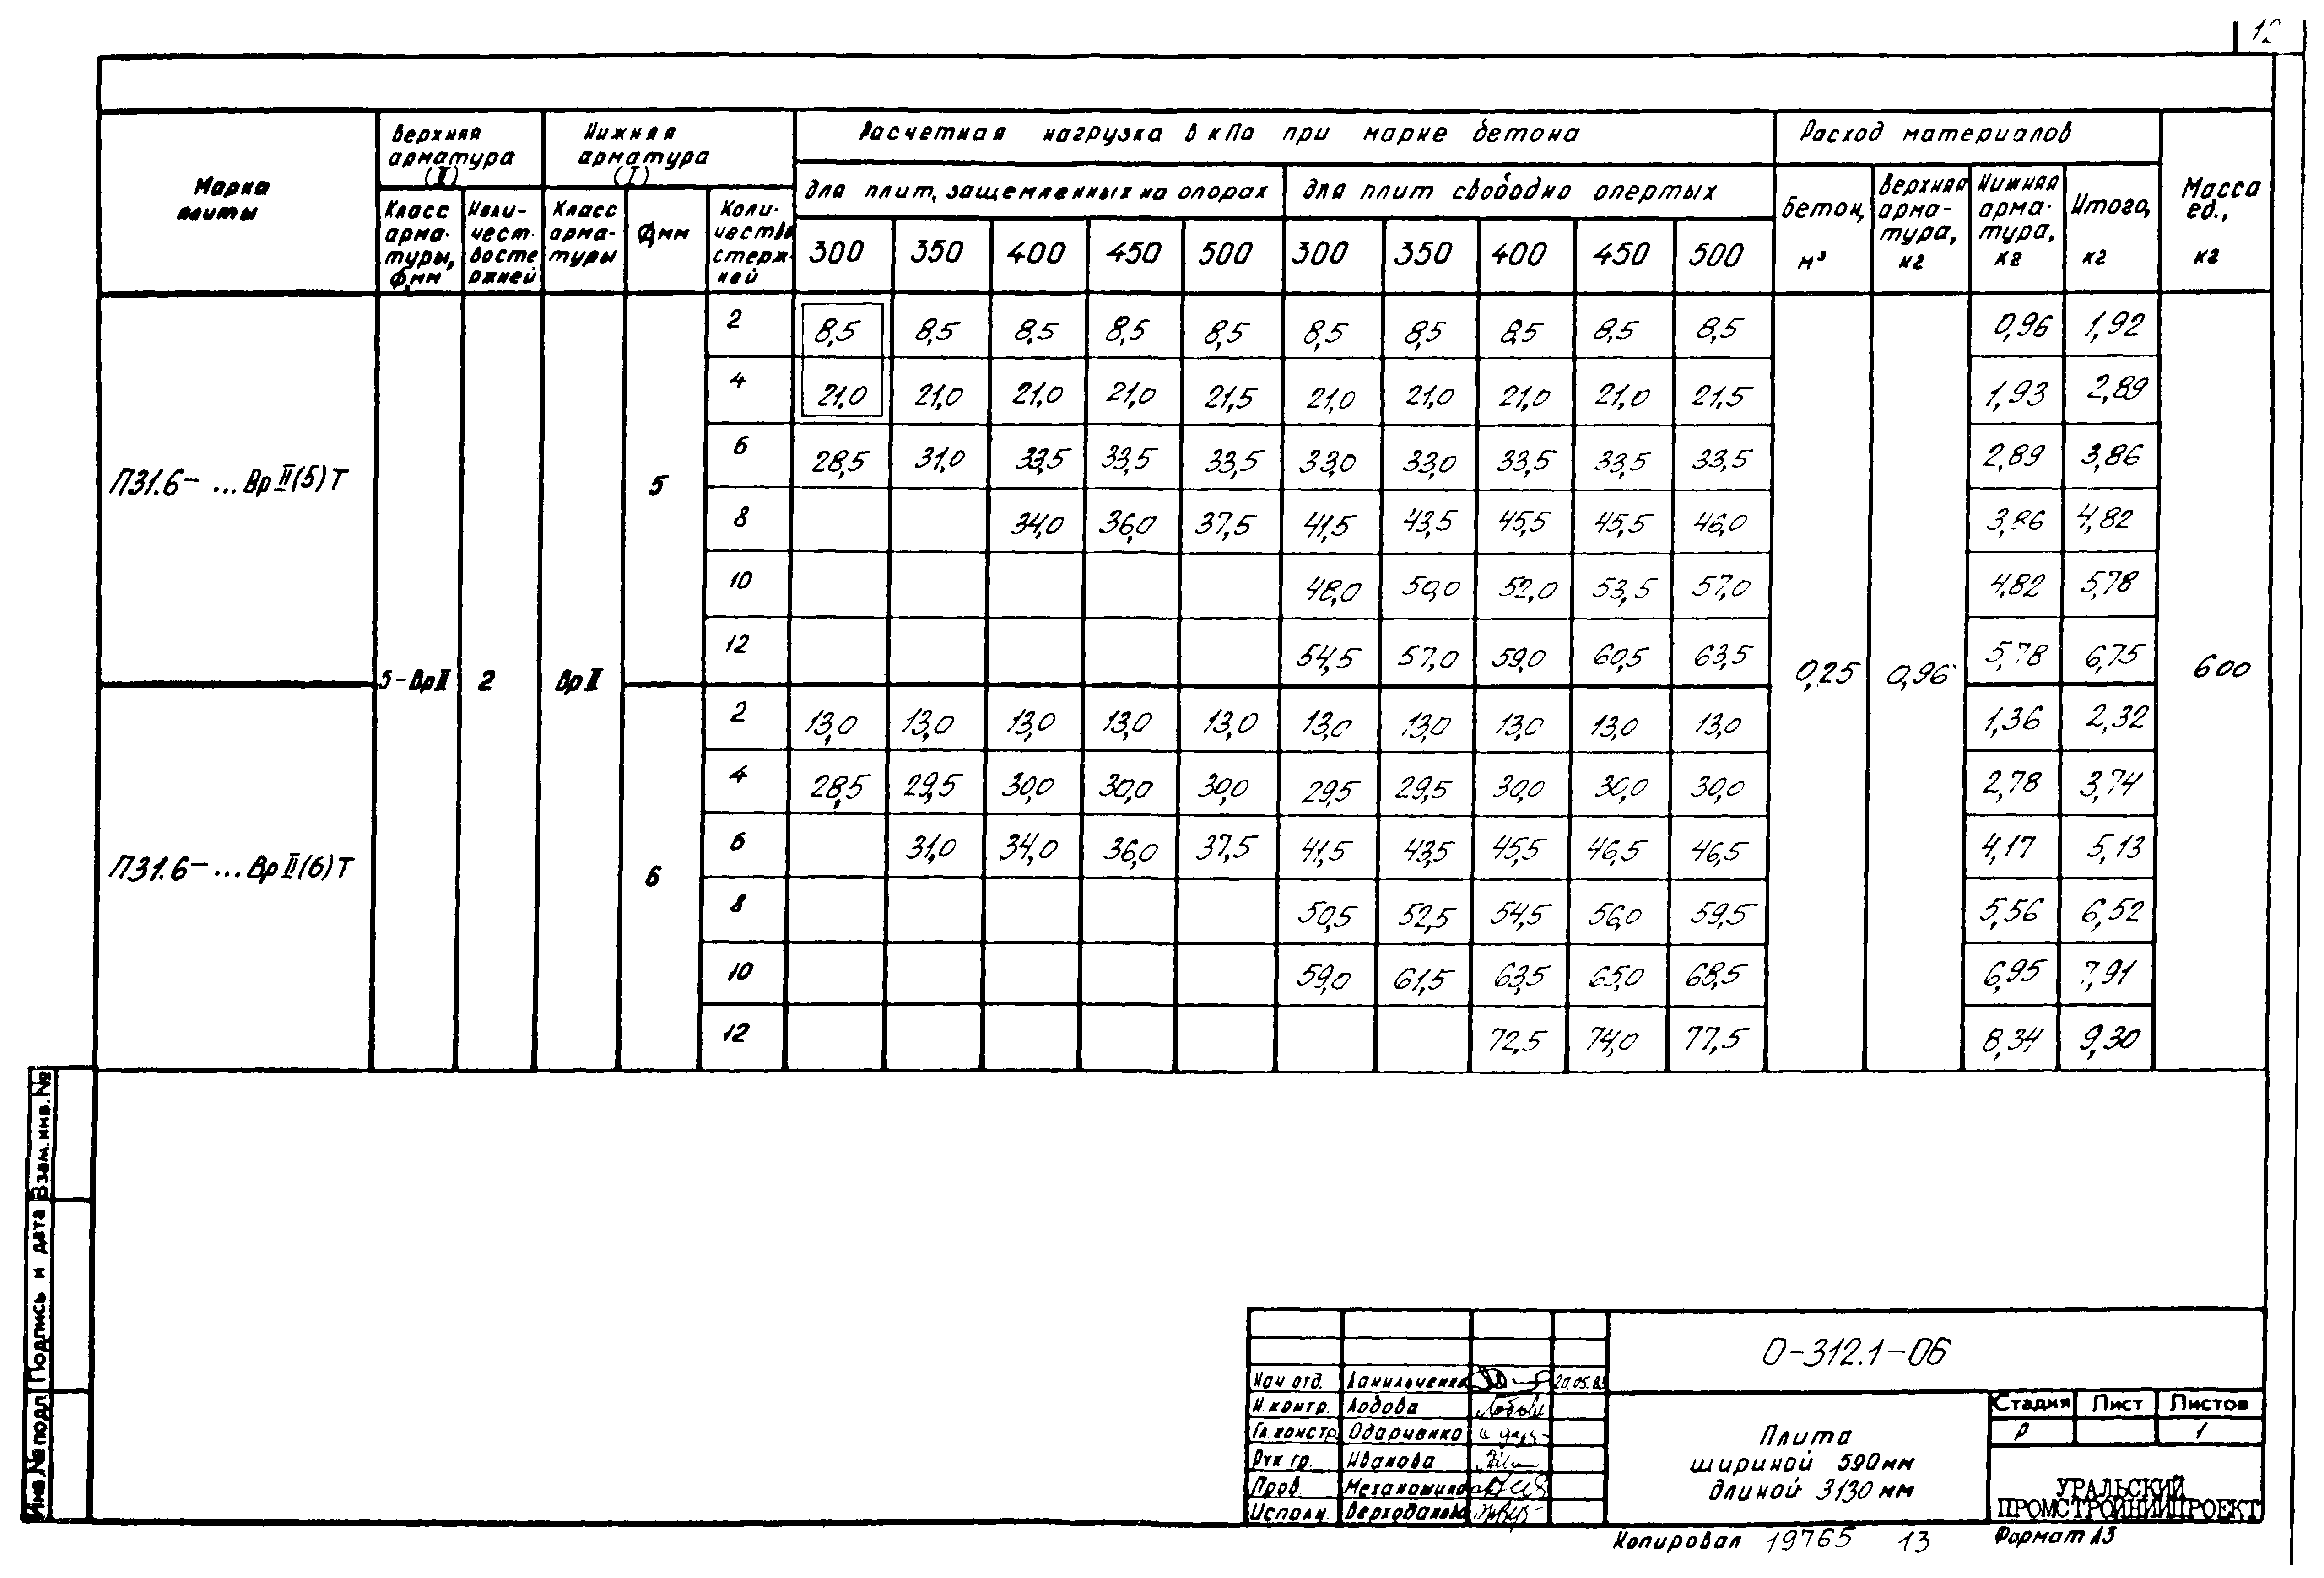 12
Марка плиты
Верхняя арматура (II)
Нижняя арматура (I)
Расчетная нагрузка в кПа при марке бетона
Расход материалов
Масса ед., кг
для плит, защемленных на опорах
для плит свободно опертых
Класс арма-туры, Фмм
Коли-чест-во сте ржней
Класс арма-туры
Фмм
Коли-чество стерж-ней
300 350 400 450 500 300 350 400 450 500
Бетон, м³
Верхняя арма-тура, кг
Нижняя арма-тура, кг
Итого, кг
П31.6- ... Вр II (5) Т
5-Вр II 2 Вр II 5 0,25 0,96 600
2 8,5 8,5 8,5 8,5 8,5 8,5 8,5 8,5 8,5 8,5 0,96 1,92
4 21,0 21,0 21,0 21,0 21,5 21,0 21,0 21,0 21,0 21,5 1,93 2,89
6 28,5 31,0 33,5 33,5 33,5 33,0 33,0 33,5 33,5 33,5 2,89 3,86
8 34,0 36,0 37,5 41,5 43,5 45,5 45,5 46,0 3,86 4,82
10 48,0 50,0 52,0 53,5 57,0 4,82 5,78
12 54,5 57,0 59,0 60,5 63,5 5,78 6,75
П31.6- ... Вр II (6) Т
6
2 13,0 13,0 13,0 13,0 13,0 13,0 13,0 13,0 13,0 13,0 1,36 2,32
4 28,5 29,5 30,0 30,0 30,0 29,5 29,5 30,0 30,0 30,0 2,78 3,74
6 31,0 34,0 36,0 37,5 41,5 43,5 45,5 46,5 46,5 4,17 5,13
8 50,5 52,5 54,5 56,0 59,5 5,56 6,52
10 59,0 61,5 63,5 65,0 68,5 6,95 7,91
12 72,5 74,0 77,5 8,34 9,30
Инв.№ подл. Подпись и дата Взам.инв.№
О-312.1-06
Нач отд. Данильченко 20.05.83
Н.контр. Лобова
Гл.констр. Одарченко
Рук гр. Иванова
Пров.
Исполн. Верходанова
Плита
шириной 590мм
длиной 3130 мм
Стадия Лист Листов
Р 1
УРАЛЬСКИЙ
ПРОМСТРОЙНИИПРОЕКТ
Копировал 19765 13 Формат А3